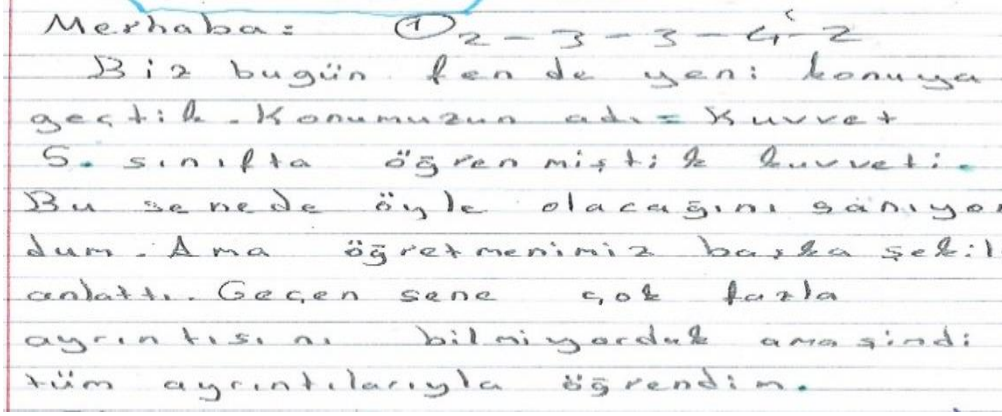 Merhaba:   ① 2 - 3 - 3 - 4 - 2
Biz bugün fen de yeni konuya
geçtik. Konumuzun adı = Kuvvet
5. sınıfta öğrenmiştik kuvveti.
Bu senede öyle olacağını sanıyor
dum. Ama öğretmenimiz başka şekil
anlattı. Geçen sene çok fazla
ayrıntısını bilmiyorduk ama şindi
tüm ayrıntılarıyla öğrendim.